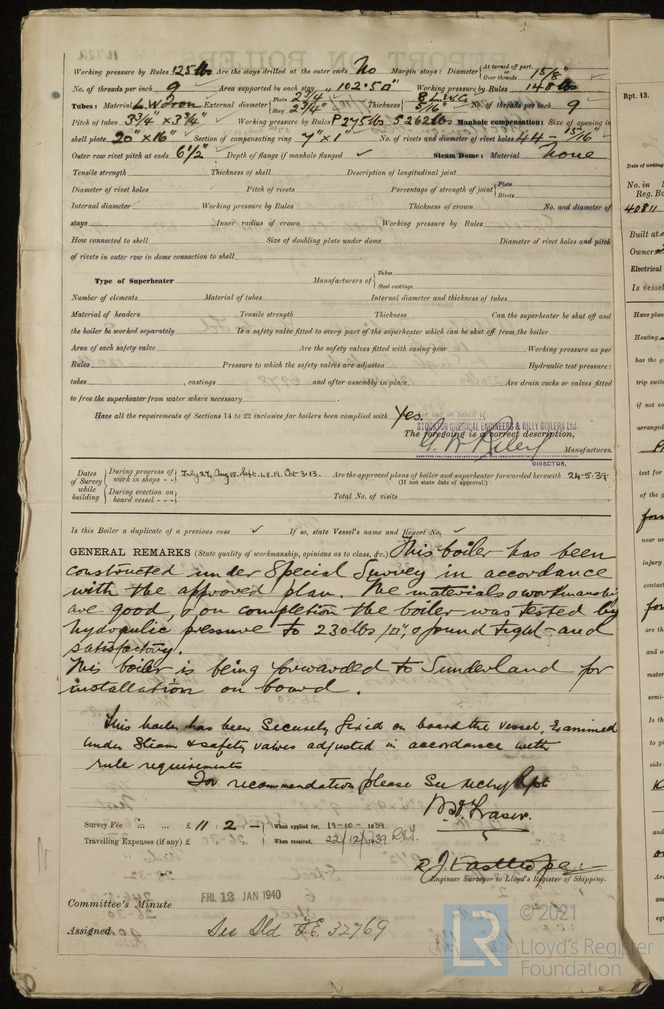 Working pressure by Rules 125 lbs Are the stays drilled at the outer ends No Margin stays: Diameter { At turned off part, or Over threads 1 5/8"
No. of threads per inch 9 Area supported by each stay 102.5 □" Working pressure by Rules 148 lbs
Tubes: Material L.W. Iron External diameter { Plain 2 3/4 Stay 2 3/4" Thickness { 8 L.W.G. 5/16" No. of threads per inch 9
Pitch of tubes 3 3/4" x 3 3/4" Working pressure by Rules P 275 lbs S 262 lbs Manhole compensation: Size of opening in
shell plate 20" x 16" Section of compensating ring 7" x 1" No. of rivets and diameter of rivet holes 44 - 15/16"
Outer row rivet pitch at ends 6 1/2" Depth of flange if manhole flanged Steam Dome: Material None
Tensile strength Thickness of shell Description of longitudinal joint
Diameter of rivet holes Pitch of rivets Percentage of strength of joint { Plate Rivets
Internal diameter Working pressure by Rules Thickness of crown No. and diameter of
stays Inner radius of crown Working pressure by Rules
How connected to shell Size of doubling plate under dome Diameter of rivet holes and pitch
of rivets in outer row in dome connection to shell
Type of Superheater Manufacturers of { Tubes Steel castings
Number of elements Material of tubes Internal diameter and thickness of tubes
Material of headers Tensile strength Thickness Can the superheater be shut off and
the boiler be worked separately Is a safety valve fitted to every part of the superheater which can be shut off from the boiler
Area of each safety valve Are the safety valves fitted with easing gear Working pressure as per
Rules Pressure to which the safety valves are adjusted Hydraulic test pressure:
tubes , castings and after assembly in place Are drain cocks or valves fitted
to free the superheater from water where necessary
Have all the requirements of Sections 14 to 22 inclusive for boilers been complied with Yes.
For and on behalf of
STOCKTON CHEMICAL ENGINEERS & RILEY BOILERS Ltd.
The foregoing is a correct description,
G. W. Riley Manufacturer.
DIRECTOR.
Dates of Survey while building { During progress of work in shops July 27, Aug 15, Sept. 4.8.19. Oct 3.13. Are the approved plans of boiler and superheater forwarded herewith 24-5-39
(If not state date of approval.)
During erection on board vessel Total No. of visits
Is this Boiler a duplicate of a previous case If so, state Vessel's name and Report No.
GENERAL REMARKS (State quality of workmanship, opinions as to class, &c.) This boiler has been
constructed under Special Survey in accordance
with the approved plan. The materials & workmanship
are good, & on completion the boiler was tested by
hydraulic pressure to 230 lbs/□", & found tight and
satisfactory.
This boiler is being forwarded to Sunderland for
installation on board.
This boiler has been securely fixed on board the vessel, examined
under steam & safety valves adjusted in accordance with
rule requirements
For recommendation please see Mchy Rpt
Fraser.
Survey Fee £ 11 : 2 : - When applied for, 19-10-1939
Travelling Expenses (if any) £ When received, 22/12/1939
R. J. Easthope
Engineer Surveyor to Lloyd's Register of Shipping.
Committee's Minute FRI. 12 JAN 1940
Assigned See Dld F.E. 32769
© 2021
Lloyd's Register
Foundation
LR
Rpt. 13.
Date of writing
No. in
Reg. Bo
40811
Built at
Owners
Electrical
Is vessel
Have plans
Heating
has the g
trip switc
if not co
arranged
test for
of the g
near un
injury
contact
are th
and o
mater
semi-
Is th
to p
side